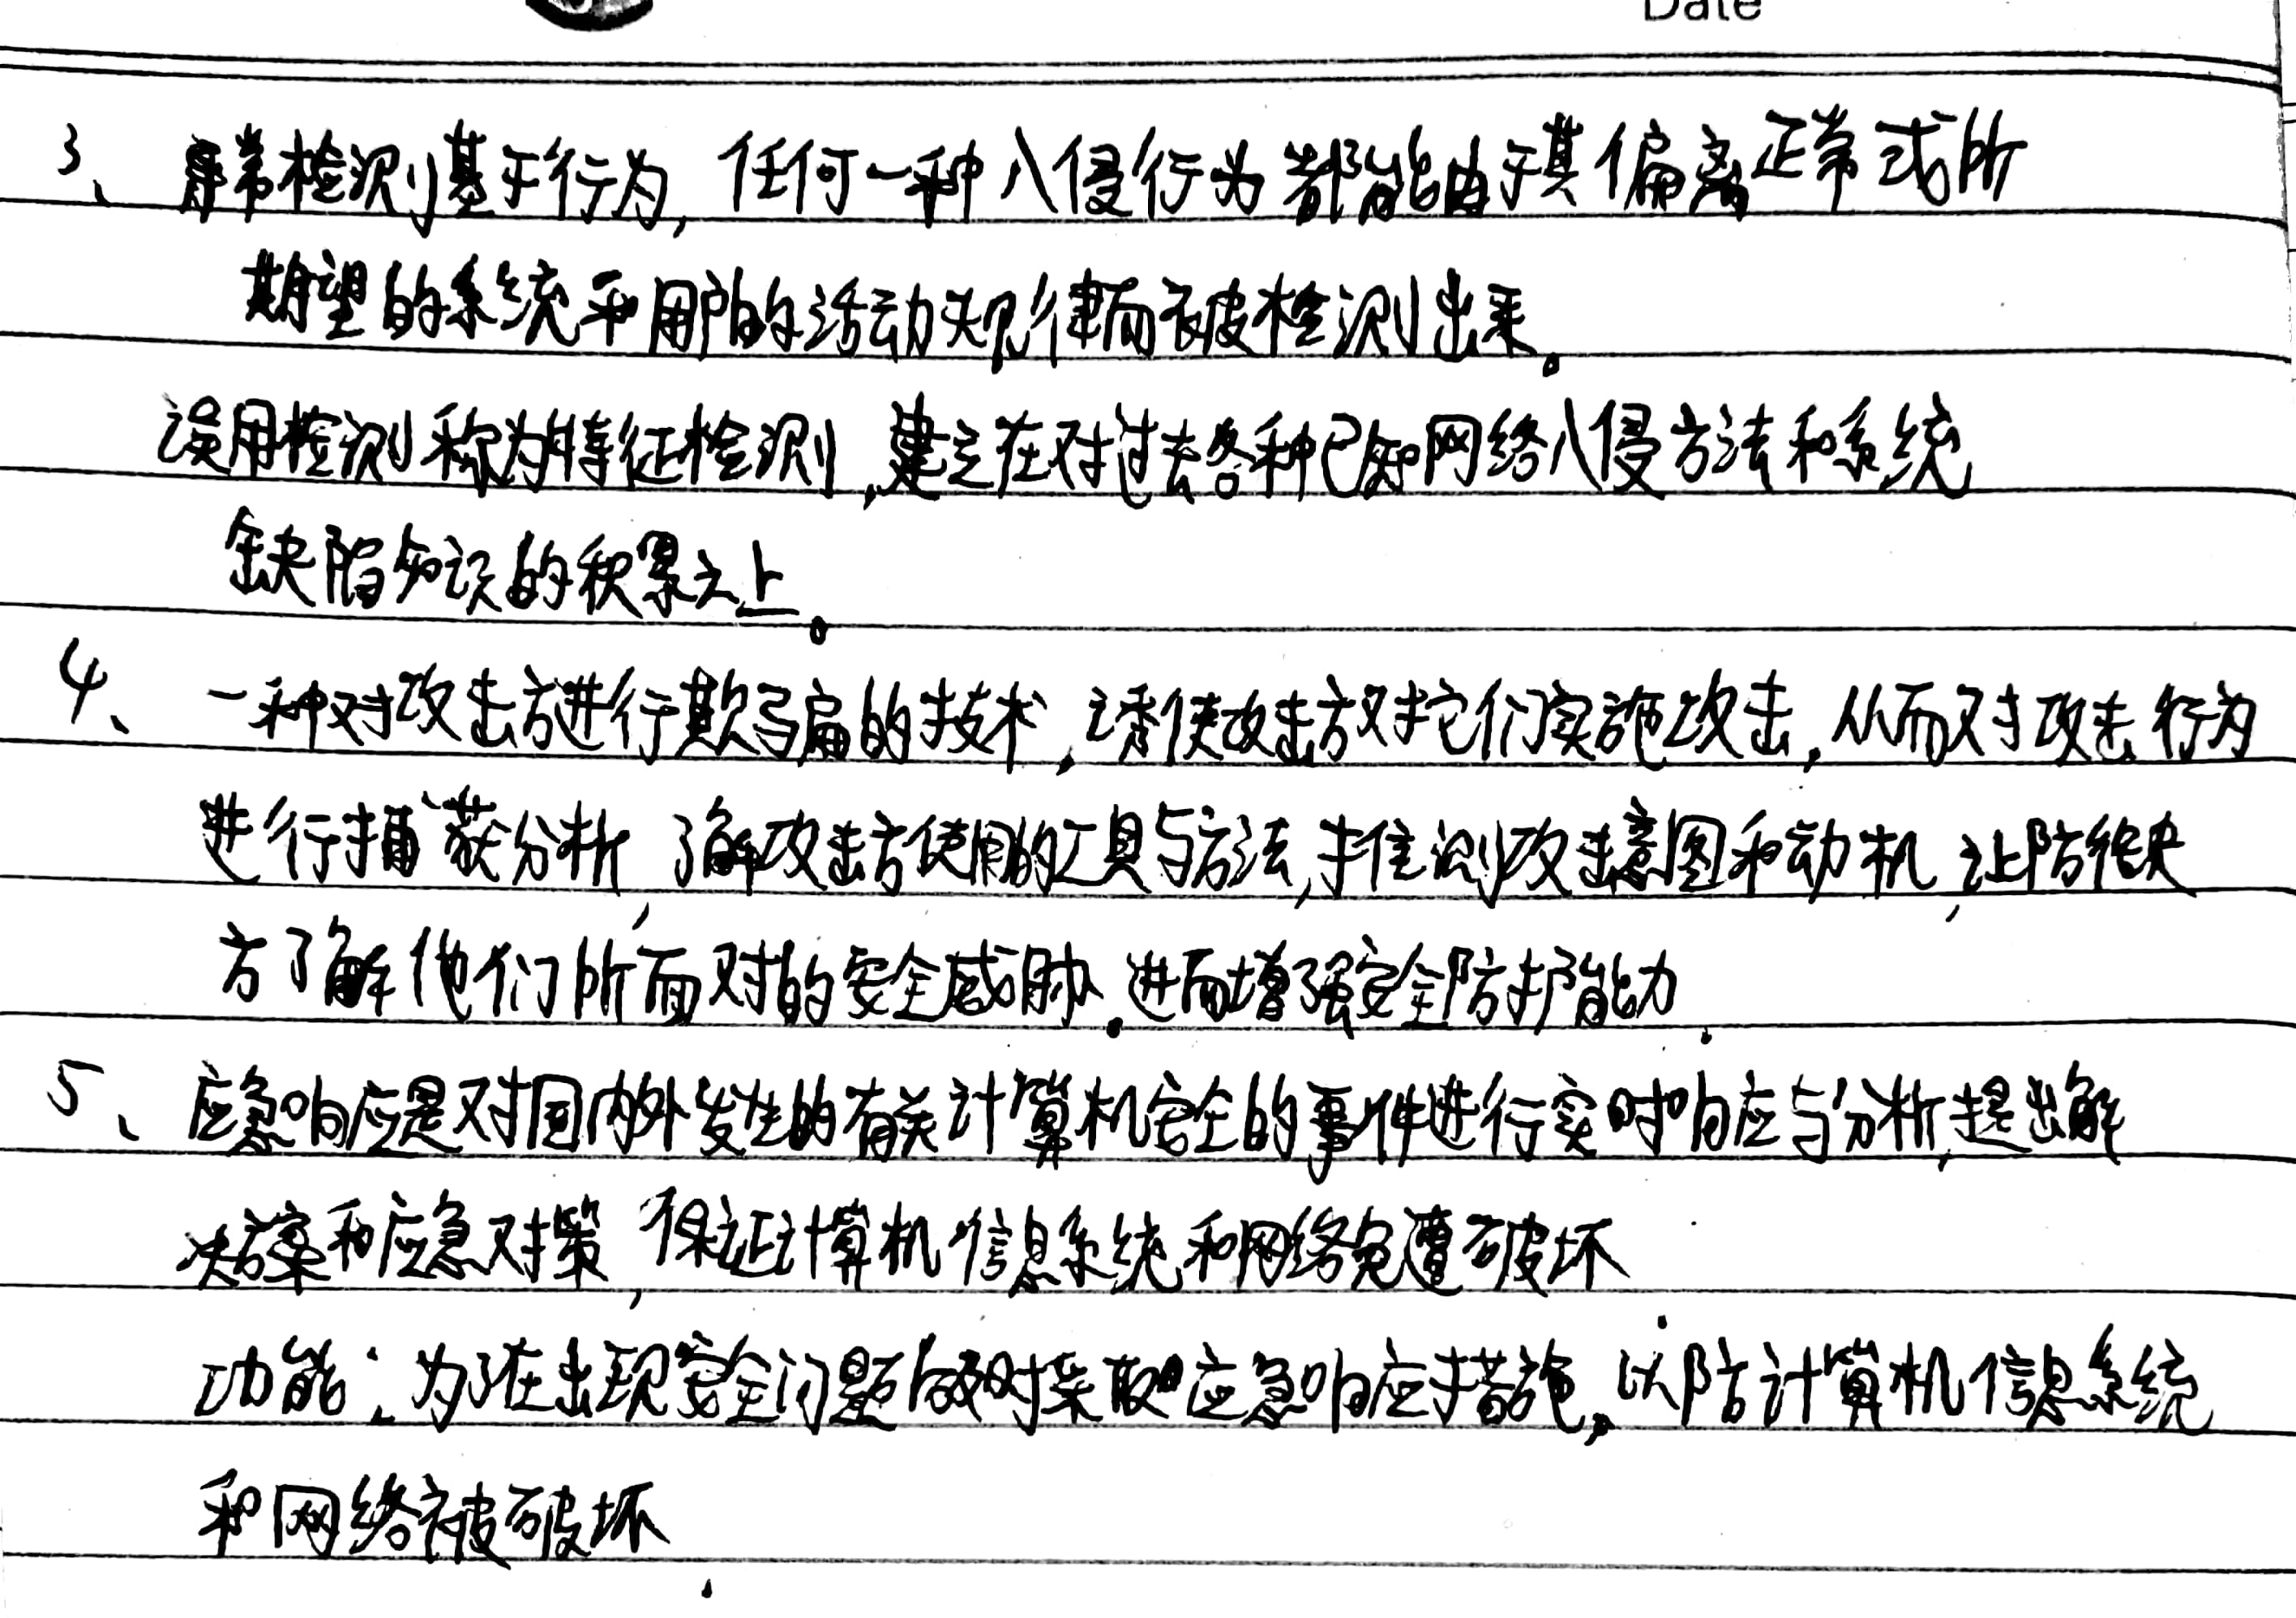 Date
3、异常检测基于行为,任何一种入侵行为都能由于其偏离正常或所
期望的系统和用户的活动规律而被检测出来。
误用检测称为特征检测,建立在对过去各种已知网络入侵方法和系统
缺陷知识的积累之上。
4、一种对攻击方进行欺骗的技术,诱使攻击方对它们实施攻击,从而对攻击行为
进行捕获分析,了解攻击方使用的工具与方法,推测攻击意图和动机,让防御
方了解他们所面对的安全威胁.进而增强安全防护能力.
5、应急响应是对国内外发生的有关计算机安全的事件进行实时响应与分析,提出解
决方案和应急对策,保证计算机信息系统和网络免遭破坏.
功能:为了在出现安全问题及时采取应急响应措施,以防计算机信息系统
和网络被破坏.